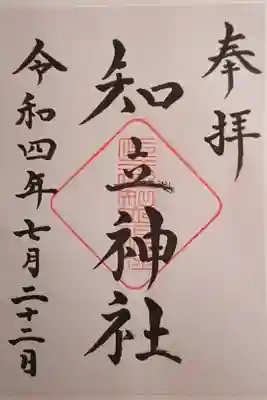 奉拝
知立神社
令和四年七月二十二日